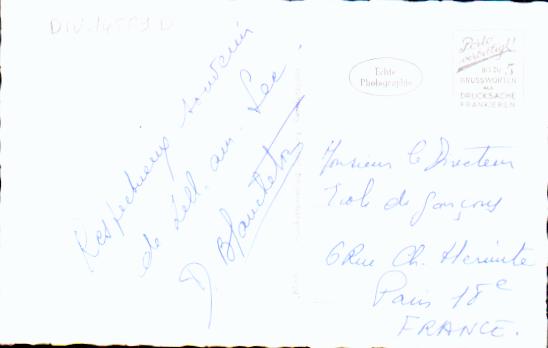 Respectueux souvenir
de Zell. am. See.
D. Blancheton
Echte
Photographie
Porto
BIS ZU 5
GRUSSWORTEN
ALS
DRUCKSACHE
FRANKIEREN
Monsieur le Directeur
Ecole de Garçons
6 Rue Ch. Hermite
Paris 18e
FRANCE.